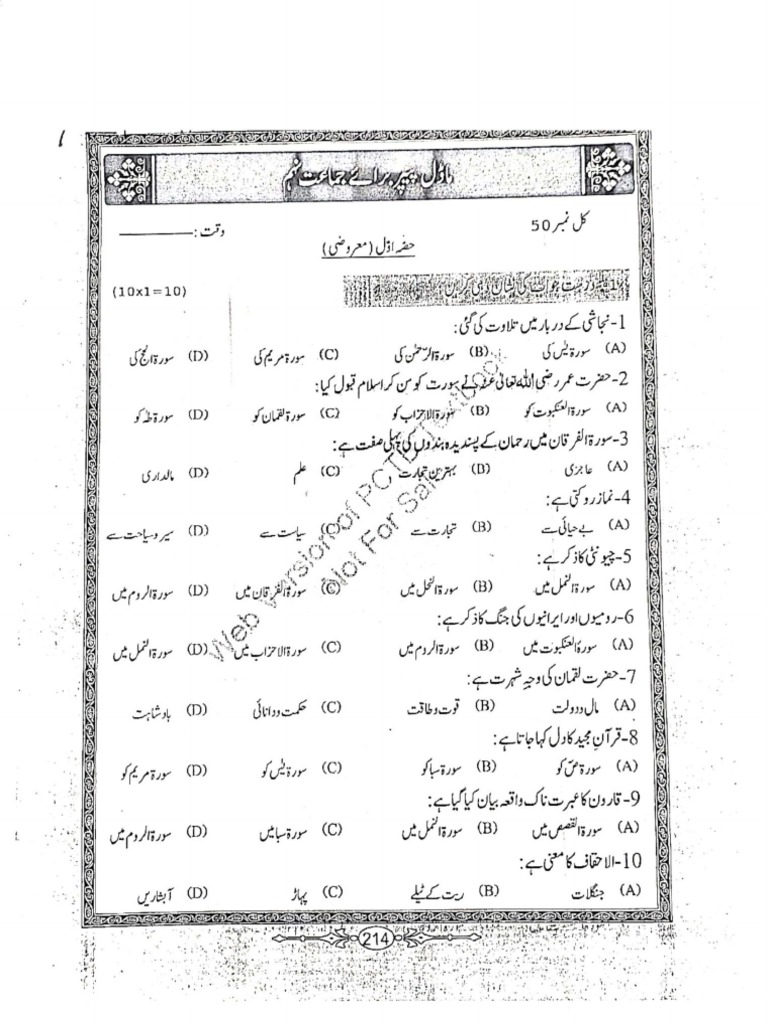 ماڈل پیپر برائے جماعت نہم
کل نمبر 50
وقت: ________
حصّہ اوّل (معروضی)
1- درست جواب کی نشان دہی کریں۔
(10x1=10)
1- نجاشی کے دربار میں تلاوت کی گئی:
(A) سورۃ یٰسٓ کی (B) سورۃ الرّحمٰن کی (C) سورۃ مریم کی (D) سورۃ الحج کی
2- حضرت عمر رضی اللہ تعالیٰ عنہ نے سورت کو سن کر اسلام قبول کیا:
(A) سورۃ العنکبوت کو (B) سورۃ الاحزاب کو (C) سورۃ لقمان کو (D) سورۃ طٰہٰ کو
3- سورۃ الفرقان میں رحمان کے پسندیدہ بندوں کی پہلی صفت ہے:
(A) عاجزی (B) بہترین تجارت (C) علم (D) مالداری
4- نماز روکتی ہے:
(A) بے حیائی سے (B) تجارت سے (C) سیاست سے (D) سیر و سیاحت سے
5- چیونٹی کا ذکر ہے:
(A) سورۃ النمل میں (B) سورۃ النحل میں (C) سورۃ الفرقان میں (D) سورۃ الروم میں
6- رومیوں اور ایرانیوں کی جنگ کا ذکر ہے:
(A) سورۃ العنکبوت میں (B) سورۃ الروم میں (C) سورۃ الاحزاب میں (D) سورۃ النمل میں
7- حضرت لقمان کی وجہِ شہرت ہے:
(A) مال و دولت (B) قوت و طاقت (C) حکمت و دانائی (D) بادشاہت
8- قرآن مجید کا دل کہا جاتا ہے:
(A) سورۃ صٓ کو (B) سورۃ سبا کو (C) سورۃ یٰسٓ کو (D) سورۃ مریم کو
9- قارون کا عبرت ناک واقعہ بیان کیا گیا ہے:
(A) سورۃ القصص میں (B) سورۃ النمل میں (C) سورۃ سبا میں (D) سورۃ الروم میں
10- الاحقاف کا معنی ہے:
(A) جنگلات (B) ریت کے ٹیلے (C) پہاڑ (D) آبشاریں
214
Web Version of PCTB Textbook
Not For Sale